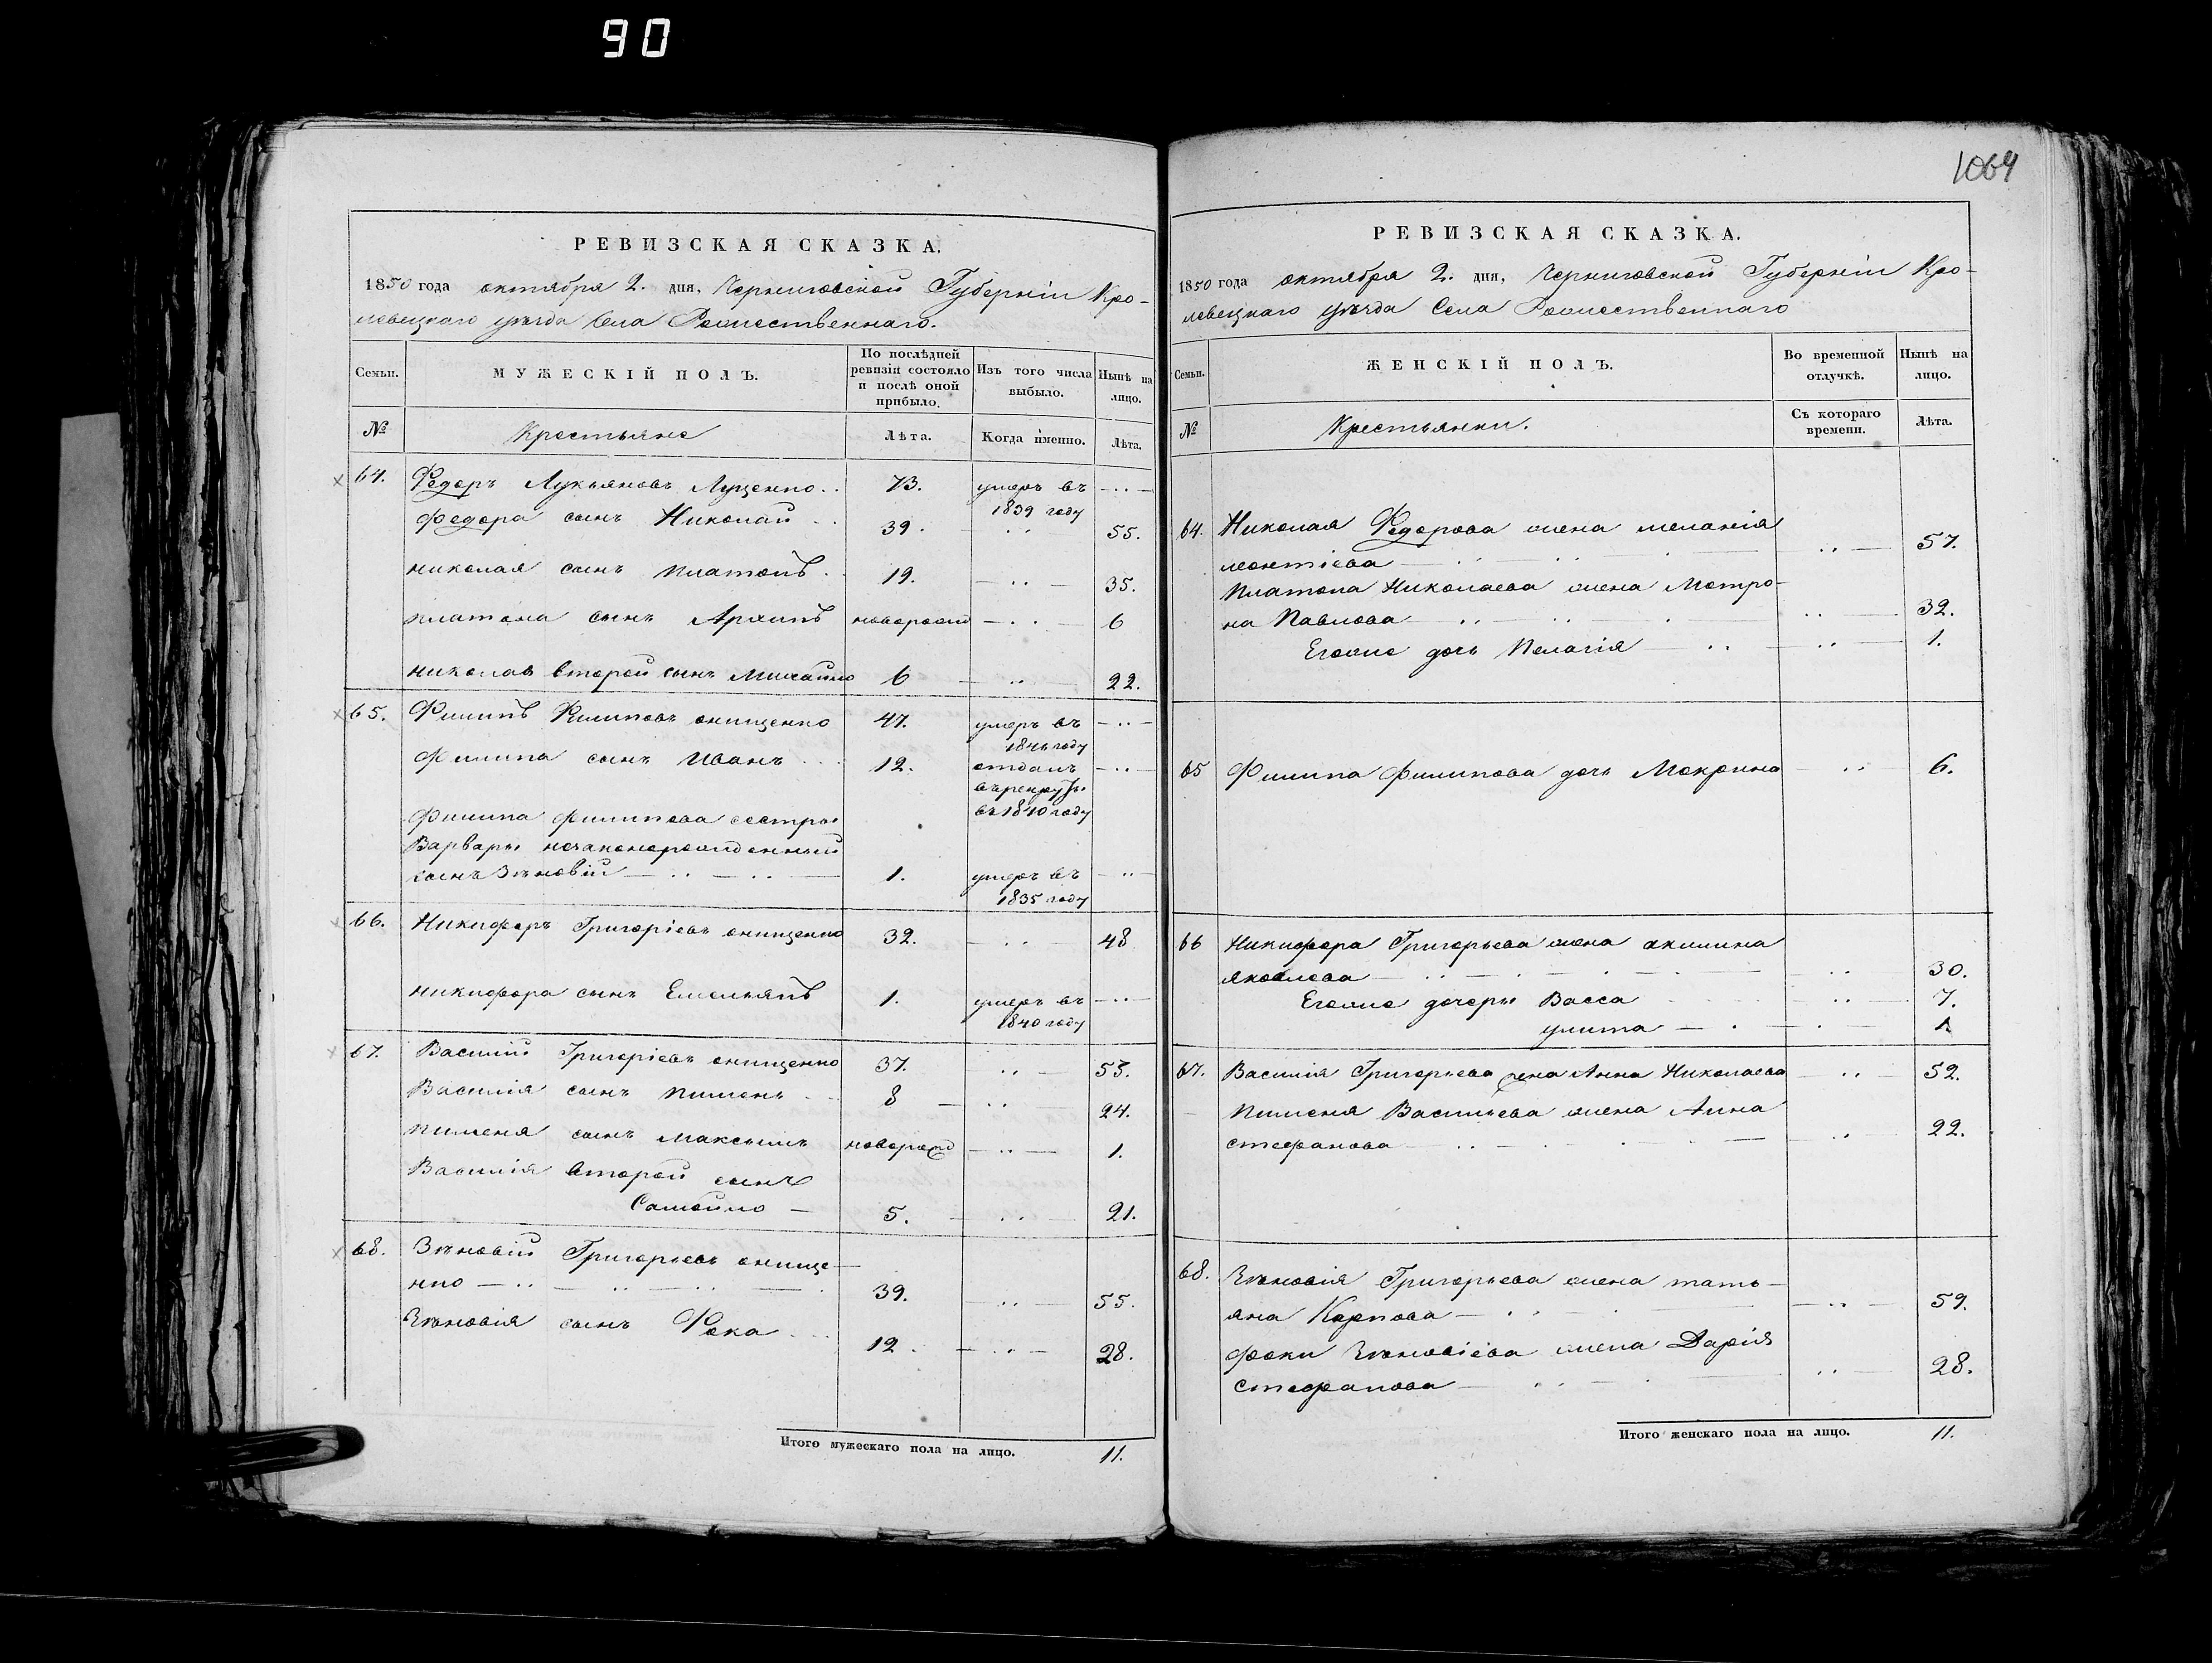 90
1064
РЕВИЗСКАЯ СКАЗКА.
1850 года октября 2. дня, Черниговской Губерніи Кро-
левецкаго уѣзда Села Рожественнаго.
Семьи. МУЖЕСКІЙ ПОЛЪ. По послѣдней ревизіи состояло и послѣ оной прибыло. Изъ того числа выбыло. Нынѣ на лицо.
№ Крестьяне Лѣта. Когда именно. Лѣта.
64. Федоръ Лукьяновъ Луценко 73. умеръ въ
1839 году
Федора сынъ Николай 39. 55.
Николая сынъ Платонъ 19. 35.
Платона сынъ Архипъ новорожд 6
Николая второй сынъ Михайло 6 22.
65. Филипъ Филиповъ Онищенко 47. умеръ въ
1846 году
Филипа сынъ Иванъ 12. отданъ
въ рекруты
въ 1840 году
Филипа Филипова сестры
Варвары незаконорожденный
сынъ Зѣновій 1. умеръ въ
1835 году
66. Никифоръ Григоріевъ Онищенко 32. 48
Никифора сынъ Емельянъ 1. умеръ въ
1840 году
67. Василій Григоріевъ Онищенко 37. 53.
Василія сынъ Пименъ 8 24.
Пименя сынъ Максимъ новорожд 1.
Василія второй сынъ
Самойло 5. 21.
68. Зѣновій Григорьевъ Онище-
нко 39. 55.
Зѣновія сынъ Фока 12. 28.
Итого мужескаго пола на лицо. 11.
РЕВИЗСКАЯ СКАЗКА.
1850 года октября 2. дня, Черниговской Губерніи Кро-
левецкаго уѣзда Села Рожественнаго
Семьи. ЖЕНСКІЙ ПОЛЪ. Во временной отлучкѣ. Нынѣ на лицо.
№ Крестьянки. Съ котораго времени. Лѣта.
64. Николая Федорова жена Меланія
Леонтіева 57.
Платона Николаева жена Мотро-
на Павлова 32.
Егоже дочь Пелагія 1.
65 Филипа Филипова дочь Мокрина 6.
66 Никифора Григорьева жена Акилина
Яковлева 30.
Егоже дочери Васса 7.
Улита 1
67. Василія Григорьева жена Анна Николаева 52.
Пименя Васильева жена Анна
Стефанова 22.
68. Зѣновія Григорьева жена Тать-
яна Карпова 59.
Фоки Зѣновіева жена Дарія
Стефанова 28.
Итого женскаго пола на лицо. 11.